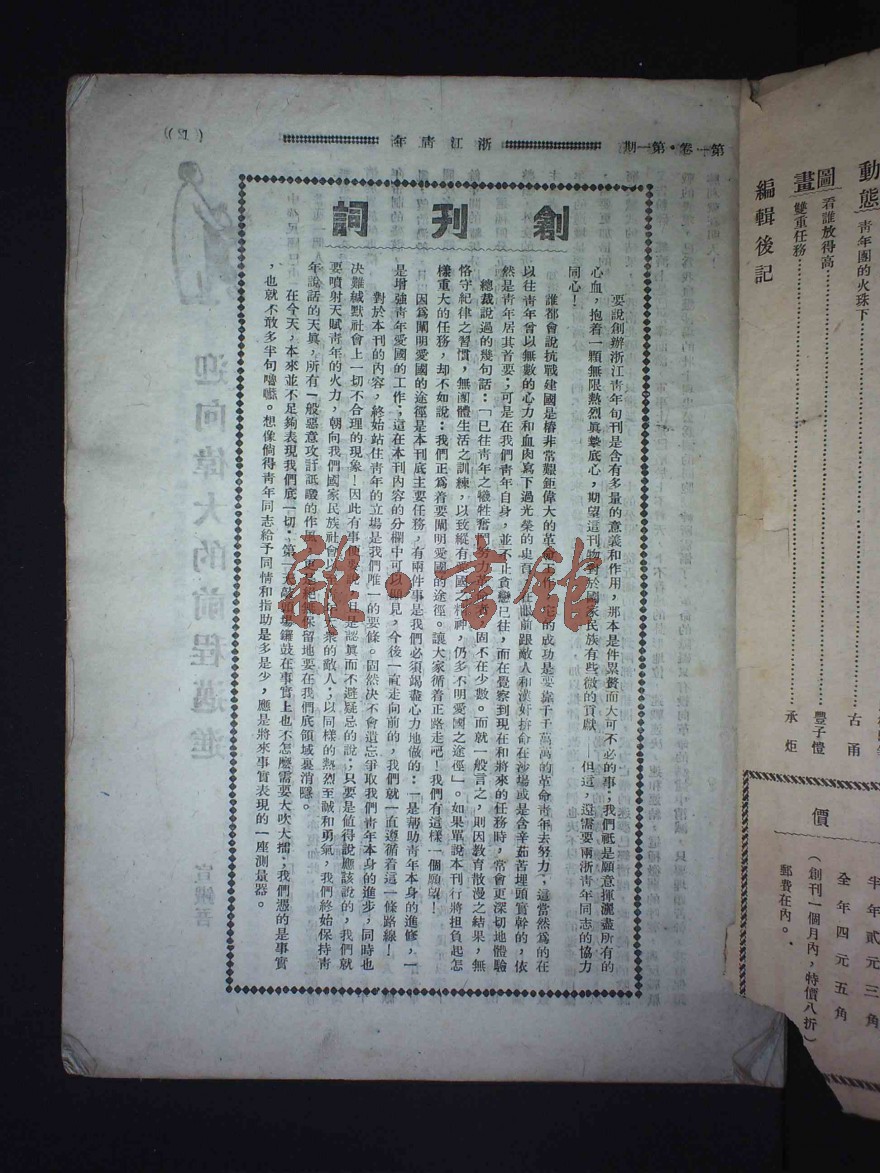 第一卷•第一期
浙江青年
(1)
創刊詞
要說創辦浙江青年旬刊是含有多量的意義和作用，那本是件累贅而大可不必的事；我們祇是願意揮灑盡所有的
心血，抱着一顆無限熱烈眞摯底心，期望這刊物對於國家民族有些微的貢獻 但這，還需要兩浙青年同志的協力
同心！
誰都會說抗戰建國是樁非常艱鉅偉大的革命工作，它的成功是要靠千千萬萬的革命青年去努力；這當然爲的在
以往青年曾以無數的心力和血肉寫下過光榮的史頁，在眼前跟敵人和漢奸拚命在沙場或是含辛茹苦埋頭實幹的，依
然是青年居其首要；可是在我們青年自身，並不止貪戀已往，而在覺察到現在和將來的任務時，常會更深切地體驗
總裁說過的幾句話：「已往青年之犧牲奮鬥努力革命者，固不在少數。而就一般言之，則因教育散漫之結果，無
恪守紀律之習慣，無團體生活之訓練，以致縱有愛國之精神，仍多不明愛國之途徑」。如果單說本刊行將担負起怎
樣重大的任務，却不如說：我們正爲着要闡明愛國的途徑。讓大家循着正路走吧！我們有這樣一個願望！
因爲闡明愛國的途徑是本刊底主要任務，有兩件事是我們必須竭盡心力地做的：一是幫助青年本身的進修，一
是增強青年愛國的工作；這在本刊內容的分欄中可以顯見，今後一直走向前的，我們就一直遵循着這一條路線！
對於本刊的內容，終始站住青年的立場是我們唯一的要條。固然決不會遺忘爭取我們青年本身的進步，同時也
決難緘默社會上一切不合理的現象！因此有事便要說，且是認眞而不避疑忌的說；只要是值得說應該說的，我們就
要噴射天賦青年的火力，朝向我們國家民族社會以至青年大衆的敵人；以同樣的熱烈至誠和勇氣，我們終始保持靑
年說話的天眞，所有一般惡意攻訐詆譭的作風，更是絕無保留地要在我們底領域裏消隱。
在今天，本來並不足夠表現我們底一切：第一天敲頭場鑼鼓在事實上也不怎麼需要大吹大擂；我們憑的是事實
，也就不敢多半句囉囌。想像倘得青年同志給予同情和指助是多是少，應是將來事實表現的一座測量器。
動態
青年團的火珠下……古甬
圖畫
看誰放得高……豐子愷
雙重任務……承炬
編輯後記
價
半年貳元三角
全年四元五角
（創刊一個月內，特價八折）
郵費在內。
迎向偉大的前程邁進
宣鐵吾
雜·書館